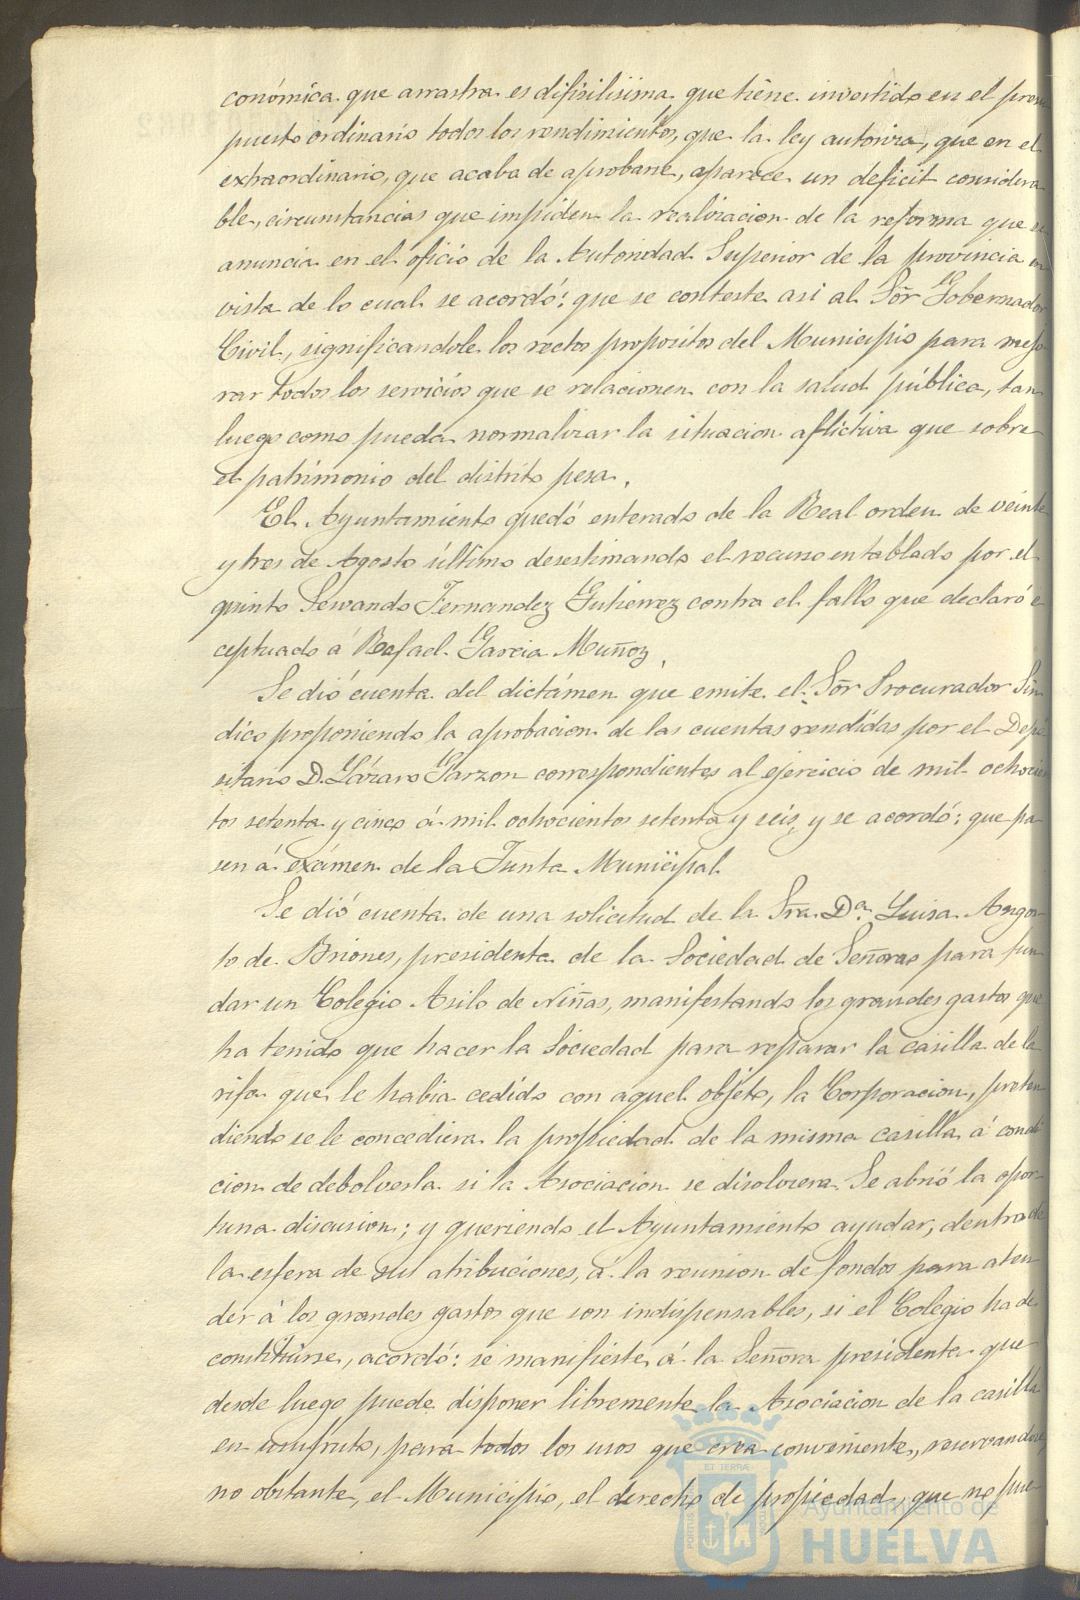 conómica que arrastra es difisilisima que tiene invertido en el presu
puesto ordinario todos los rendimientos, que la ley autoriza, que en el
extraordinario, que acaba de aprobarse, aparece un deficit considera
ble, circunstancias que impiden la realizacion de la reforma que se
anuncia en el oficio de la Autoridad Superior de la provincia en
vista de lo cual se acordó: que se conteste asi al Sõr Gobernador
Civil, significandole los rectos propositos del Municipio para mejo
rar todos los servicios que se relacionen con la salud pública, tan
luego como pueda normalizar la situacion aflictiva que sobre
el patrimonio del distrito pesa.
El Ayuntamiento quedó enterado de la Real orden de veinte
y tres de Agosto último desestimando el recurso entablado por el
quinto Servando Fernandez Gutierrez contra el fallo que declaró e
ceptuado á Rafael Garcia Muñoz.
Se dió cuenta del dictámen que emite el Sõr Procurador Sin
dico proponiendo la aprobacion de las cuentas rendidas por el Depo
sitario D. Lázaro Garzon correspondientes al ejercicio de mil ochocien
tos setenta y cinco á mil ochocientos setenta y seis, y se acordó: que pa
sen á exámen de la Junta Municipal.
Se dió cuenta de una solicitud de la Sra. Dª. Luisa Angos
to de Briones, presidenta de la Sociedad de Señoras para fun
dar un Colegio Asilo de Niñas, manifestando los grandes gastos que
ha tenido que hacer la Sociedad para reparar la casilla de la
rifa que le habia cedido con aquel objeto, la Corporacion, preten
diendo se le concediera la propiedad de la misma casilla á condi
cion de debolverla si la Asociacion se disolviera. Se abrió la opor
tuna discusion; y queriendo el Ayuntamiento ayudar, dentro de
la esfera de sus atribuciones, á la reunion de fondos para aten
der á los grandes gastos que son indispensables, si el Colegio ha de
constituirse, acordó: se manifieste á la Señora presidenta que
desde luego puede disponer libremente la Asociacion de la casilla
en usufruto, para todos los usos que crea conveniente, reservandose
no obstante, el Municipio, el derecho de propiedad, que no pue
Ayuntamiento de
HUELVA